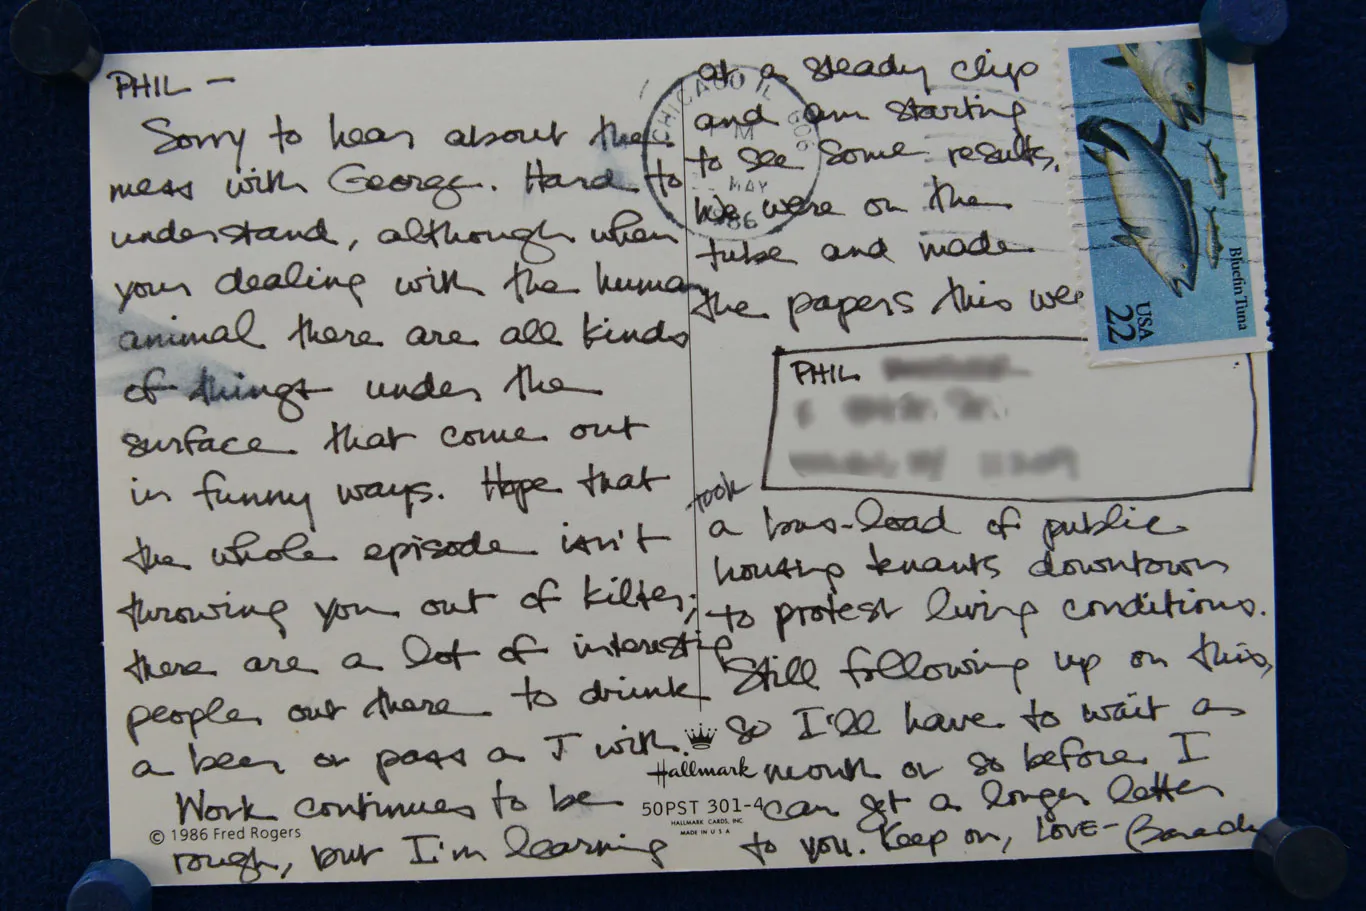 PHIL —
Sorry to hear about the
mess with George. Hard to
understand, although when
your dealing with the human
animal there are all kinds
of things under the
surface that come out
in funny ways. Hope that
the whole episode isn't
throwing you out of kilter;
there are a lot of interesting
people out there to drink
a beer or pass a J with.
Work continues to be
rough, but I'm learning
© 1986 Fred Rogers
at a steady clip
and am starting
to see some results.
We were on the
tube and made
the papers this
took
a bus-load of public
housing tenants downtown
to protest living conditions.
Still following up on this,
so I'll have to wait a
month or so before I
can get a longer letter
to you. Keep on, LOVE- Barack
CHICAGO IL 606
M
MAY
86
Bluefin Tuna
USA
22
PHIL
Hallmark
50PST 301-4
HALLMARK CARDS, INC.
MADE IN U S A